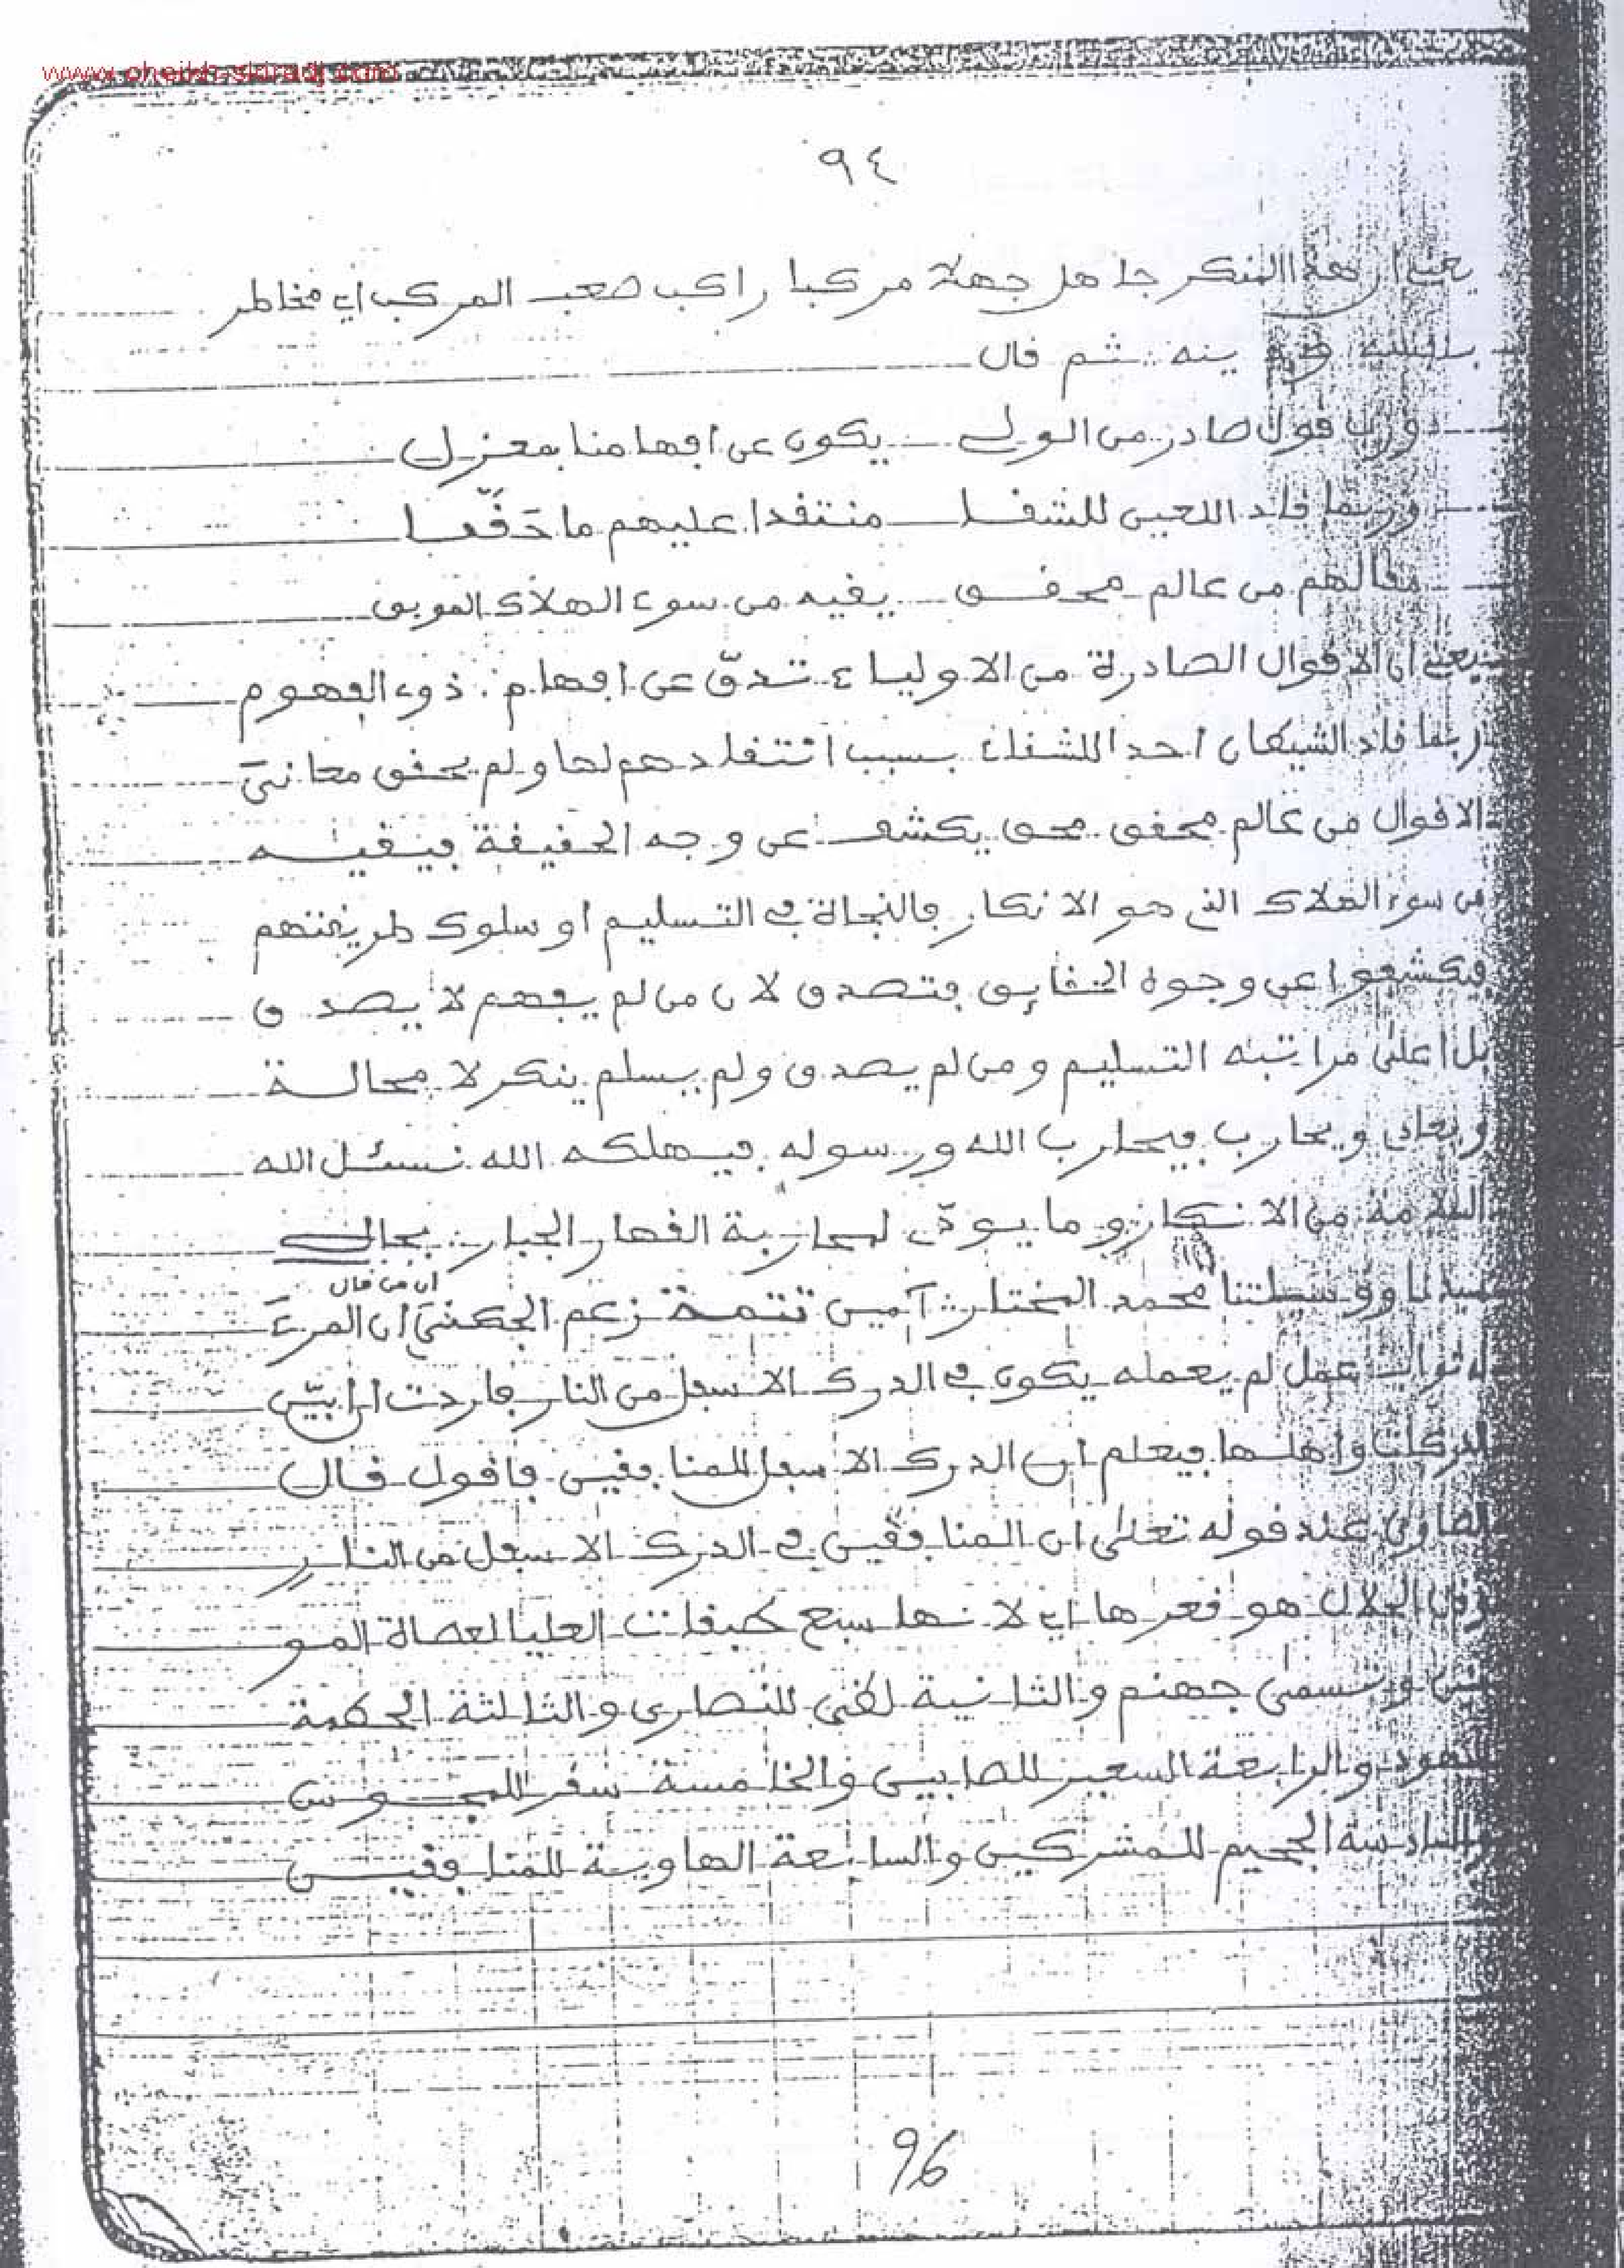 www.cheikh-skiradj.com
٩٤
يعني ان هذا المنكر جاهل جهلا مركبا راكب صعب المركب اي مخاطر
بنفسه ودينه ثم قال
ورب قول صادر من الولي يكون عن افهامنا بمعزل
وربما قاد اللعين للشقا منتقدا عليهم ما حَقّقا
مقالهم من عالم محقق يقيه من سوء الهلاك الموبق
يعني ان الاقوال الصادرة من الاولياء تدقّ عن افهام ذوي الفهوم
ربما قاد الشيطان احدا للشقاء بسبب انتقادهم لها ولم يحقق معاني
الاقوال من عالم محقق محق يكشف عن وجه الحقيقة فيقيه
من سوء الهلاك الذي هو الانكار فالنجاة في التسليم او سلوك طريقتهم
فيكشفوا عن وجوه الحقايق فتصدق لان من لم يفهم لا يصدق
بل اعلى مراتبه التسليم ومن لم يصدق ولم يسلم ينكر لا محالة
ويعادي ويحارب فيحارب الله ورسوله فيهلكه الله نسئل الله
السلامة من الانكار وما يودّي لمحاربة القهار الجبار بجاه
سيدنا ووسيلتنا محمد المختار آمين تتمة زعم الجكني ان المرء
ان من قال
له ثواب عمل لم يعمله يكون في الدرك الاسفل من النار فاردت ان ابيّن
الدركات واهلها فيعلم ان الدرك الاسفل للمنافقين فاقول قال
الصاوي عند قوله تعلى ان المنافقين في الدرك الاسفل من النار
وقال الجلال هو قعرها اي لانها سبع طبقات العليا لعصاة المو
منين وتسمى جهنم والثانية لظى للنصارى والثالثة الحطمة
لليهود والرابعة السعير للصابين والخامسة سقر للمجوس
والسادسة الجحيم للمشركين والسابعة الهاوية للمنافقين
96